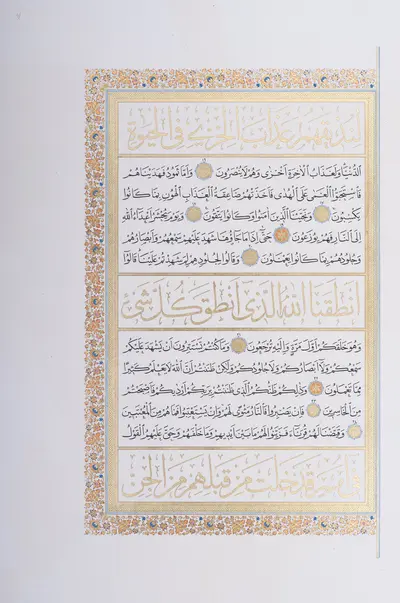 لنذيقهم عذاب الخزي في الحيوة
الدنيا ولعذاب الآخرة أخزى وهم لا ينصرون ۝ وأما ثمود فهديناهم
فاستحبوا العمى على الهدى فأخذتهم صاعقة العذاب الهون بما كانوا
يكسبون ۝ ونجينا الذين آمنوا وكانوا يتقون ۝ ويوم يحشر أعداء الله
إلى النار فهم يوزعون ۝ حتى إذا ما جاؤها شهد عليهم سمعهم وأبصارهم
وجلودهم بما كانوا يعملون ۝ وقالوا لجلودهم لم شهدتم علينا قالوا
أنطقنا الله الذي أنطق كل شيء
وهو خلقكم أول مرة وإليه ترجعون ۝ وما كنتم تستترون أن يشهد عليكم
سمعكم ولا أبصاركم ولا جلودكم ولكن ظننتم أن الله لا يعلم كثيرا
مما تعملون ۝ وذلكم ظنكم الذي ظننتم بربكم أرداكم فأصبحتم
من الخاسرين ۝ فإن يصبروا فالنار مثوى لهم وإن يستعتبوا فما هم من المعتبين
۝ وقيضنا لهم قرناء فزينوا لهم ما بين أيديهم وما خلفهم وحق عليهم القول
في أمم قد خلت من قبلهم من الجن